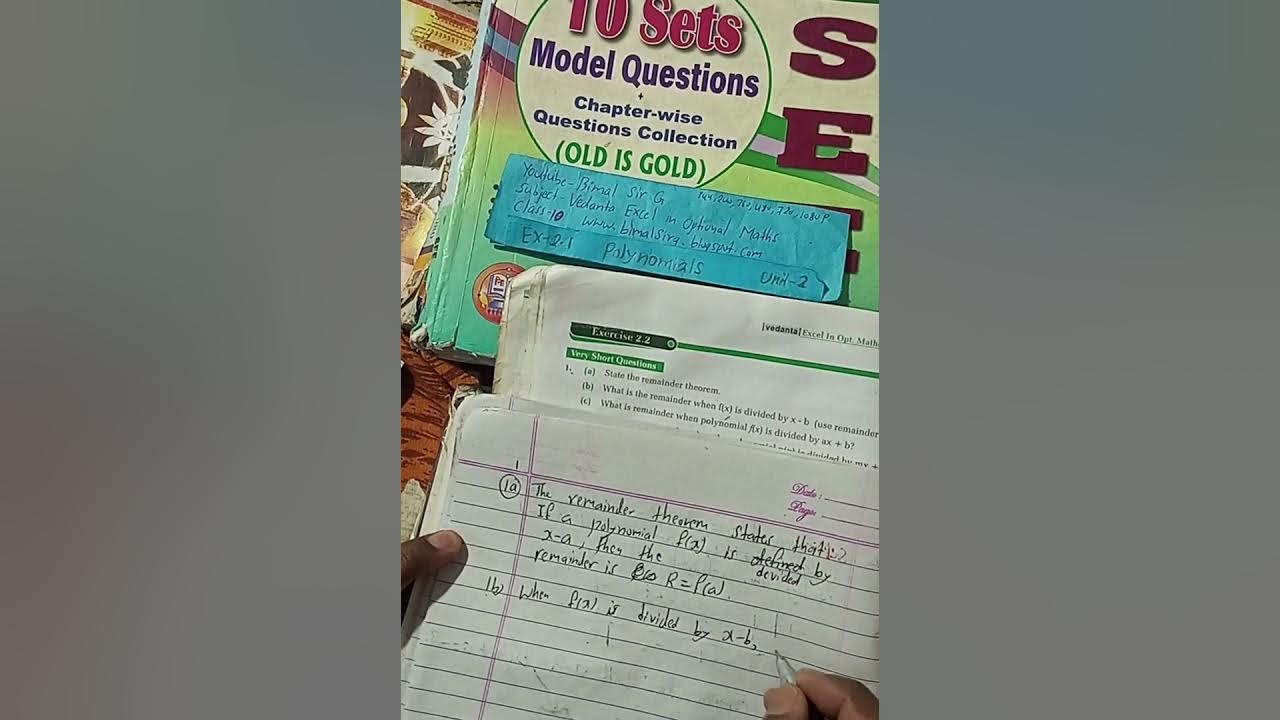 10 Sets
Model Questions
+
Chapter-wise
Questions Collection
(OLD IS GOLD)
S
E
Youtube-Bimal Sir G 144, 240, 360, 480, 720, 1080P
Subject-Vedanta Excel in Optional Maths
Class-10 www.bimalsirg.blogspot.com
EX-2.1 Polynomials Unit-2
|vedanta| Excel In Opt. Math
Exercise 2.2
Very Short Questions
1. (a) State the remainder theorem.
(b) What is the remainder when f(x) is divided by x - b (use remainder
(c) What is remainder when polynomial f(x) is divided by ax + b?
is divided by mx +
Date:
Page:
1
1a The remainder theorem states that:
If a polynomial f(x) is defined by
devided
x-a, then the
remainder is R = f(a).
1b) When f(x) is divided by x-b,